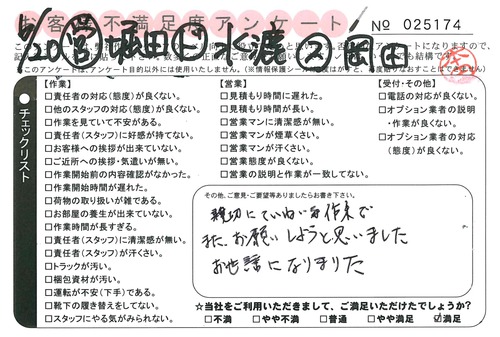 お客様不満足度アンケート
No 025174
5/20 ㊂堀田 ㋪水瀧 ㋜岡田
※このアンケートは、アンケート目的以外には使用いたしません。
チェックリスト
【作業】
□責任者の対応(態度)が良くない。
□他のスタッフの対応(態度)が良くない。
□作業を見ていて不安がある。
□責任者(スタッフ)に好感が持てない。
□お客様への挨拶が出来ていない。
□ご近所への挨拶・気遣いが無い。
□作業開始前の内容確認がなかった。
□作業開始時間が遅れた。
□荷物の取り扱いが雑である。
□お部屋の養生が出来ていない。
□作業時間が長すぎる。
□責任者(スタッフ)に清潔感が無い。
□責任者(スタッフ)が汗くさい。
□トラックが汚い。
□梱包資材が汚い。
□運転が不安(下手)である。
□靴下の履き替えをしてない。
□スタッフにやる気がみられない。
【営業】
□見積もり時間に遅れた。
□見積もり時間が長い。
□営業マンに清潔感が無い。
□営業マンが煙草くさい。
□営業マンが汗くさい。
□営業態度が良くない。
□営業の説明と作業が一致してない。
【受付・その他】
□電話の対応が良くない。
□オプション業者の説明
・作業が良くない。
□オプション業者の対応
(態度)が良くない。
その他、ご意見・ご要望等ありましたらお書き下さい。
親切にていねいな作業で
また、お願いしようと思いました
お世話になりました
☆当社をご利用いただきまして、ご満足いただけたでしょうか?
□不満 □やや不満 □普通 □やや満足 ☑満足